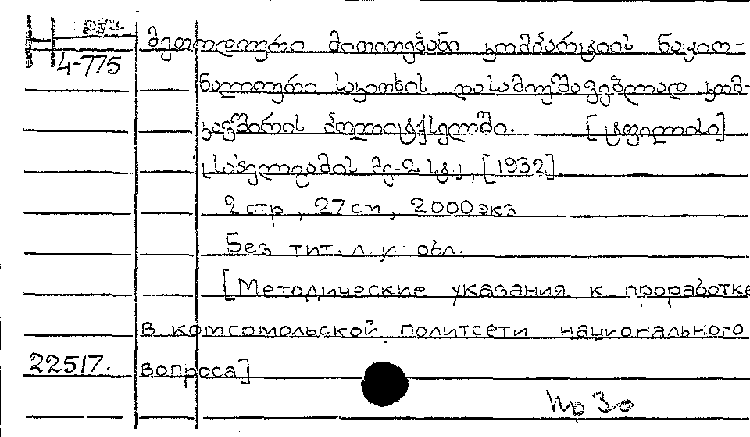 4-775
მეთოდიური მითითებანი კომპარტიის ნაციო-
ნალური საკითხის დასამუშავებლად კომ-
კავშირის პოლიტქსელში. [ტფილისი]
[1932]
2 стр., 27 см, 2000 экз
Без тит. л. и обл.
[Методические указания к проработке
в комсомольской политсети национального
22517. вопроса]